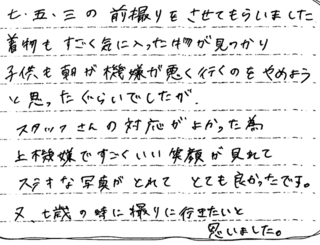 七・五・三の前撮りをさせてもらいました
着物もすごく気に入った物が見つかり
子供も朝が機嫌が悪く行くのをやめよう
と思ったぐらいでしたが、
スタッフさんの対応がよかった為
上機嫌ですごくいい笑顔が見れて
ステキな写真がとれて とても良かったです。
又 七歳の時に撮りに行きたいと
思いました。